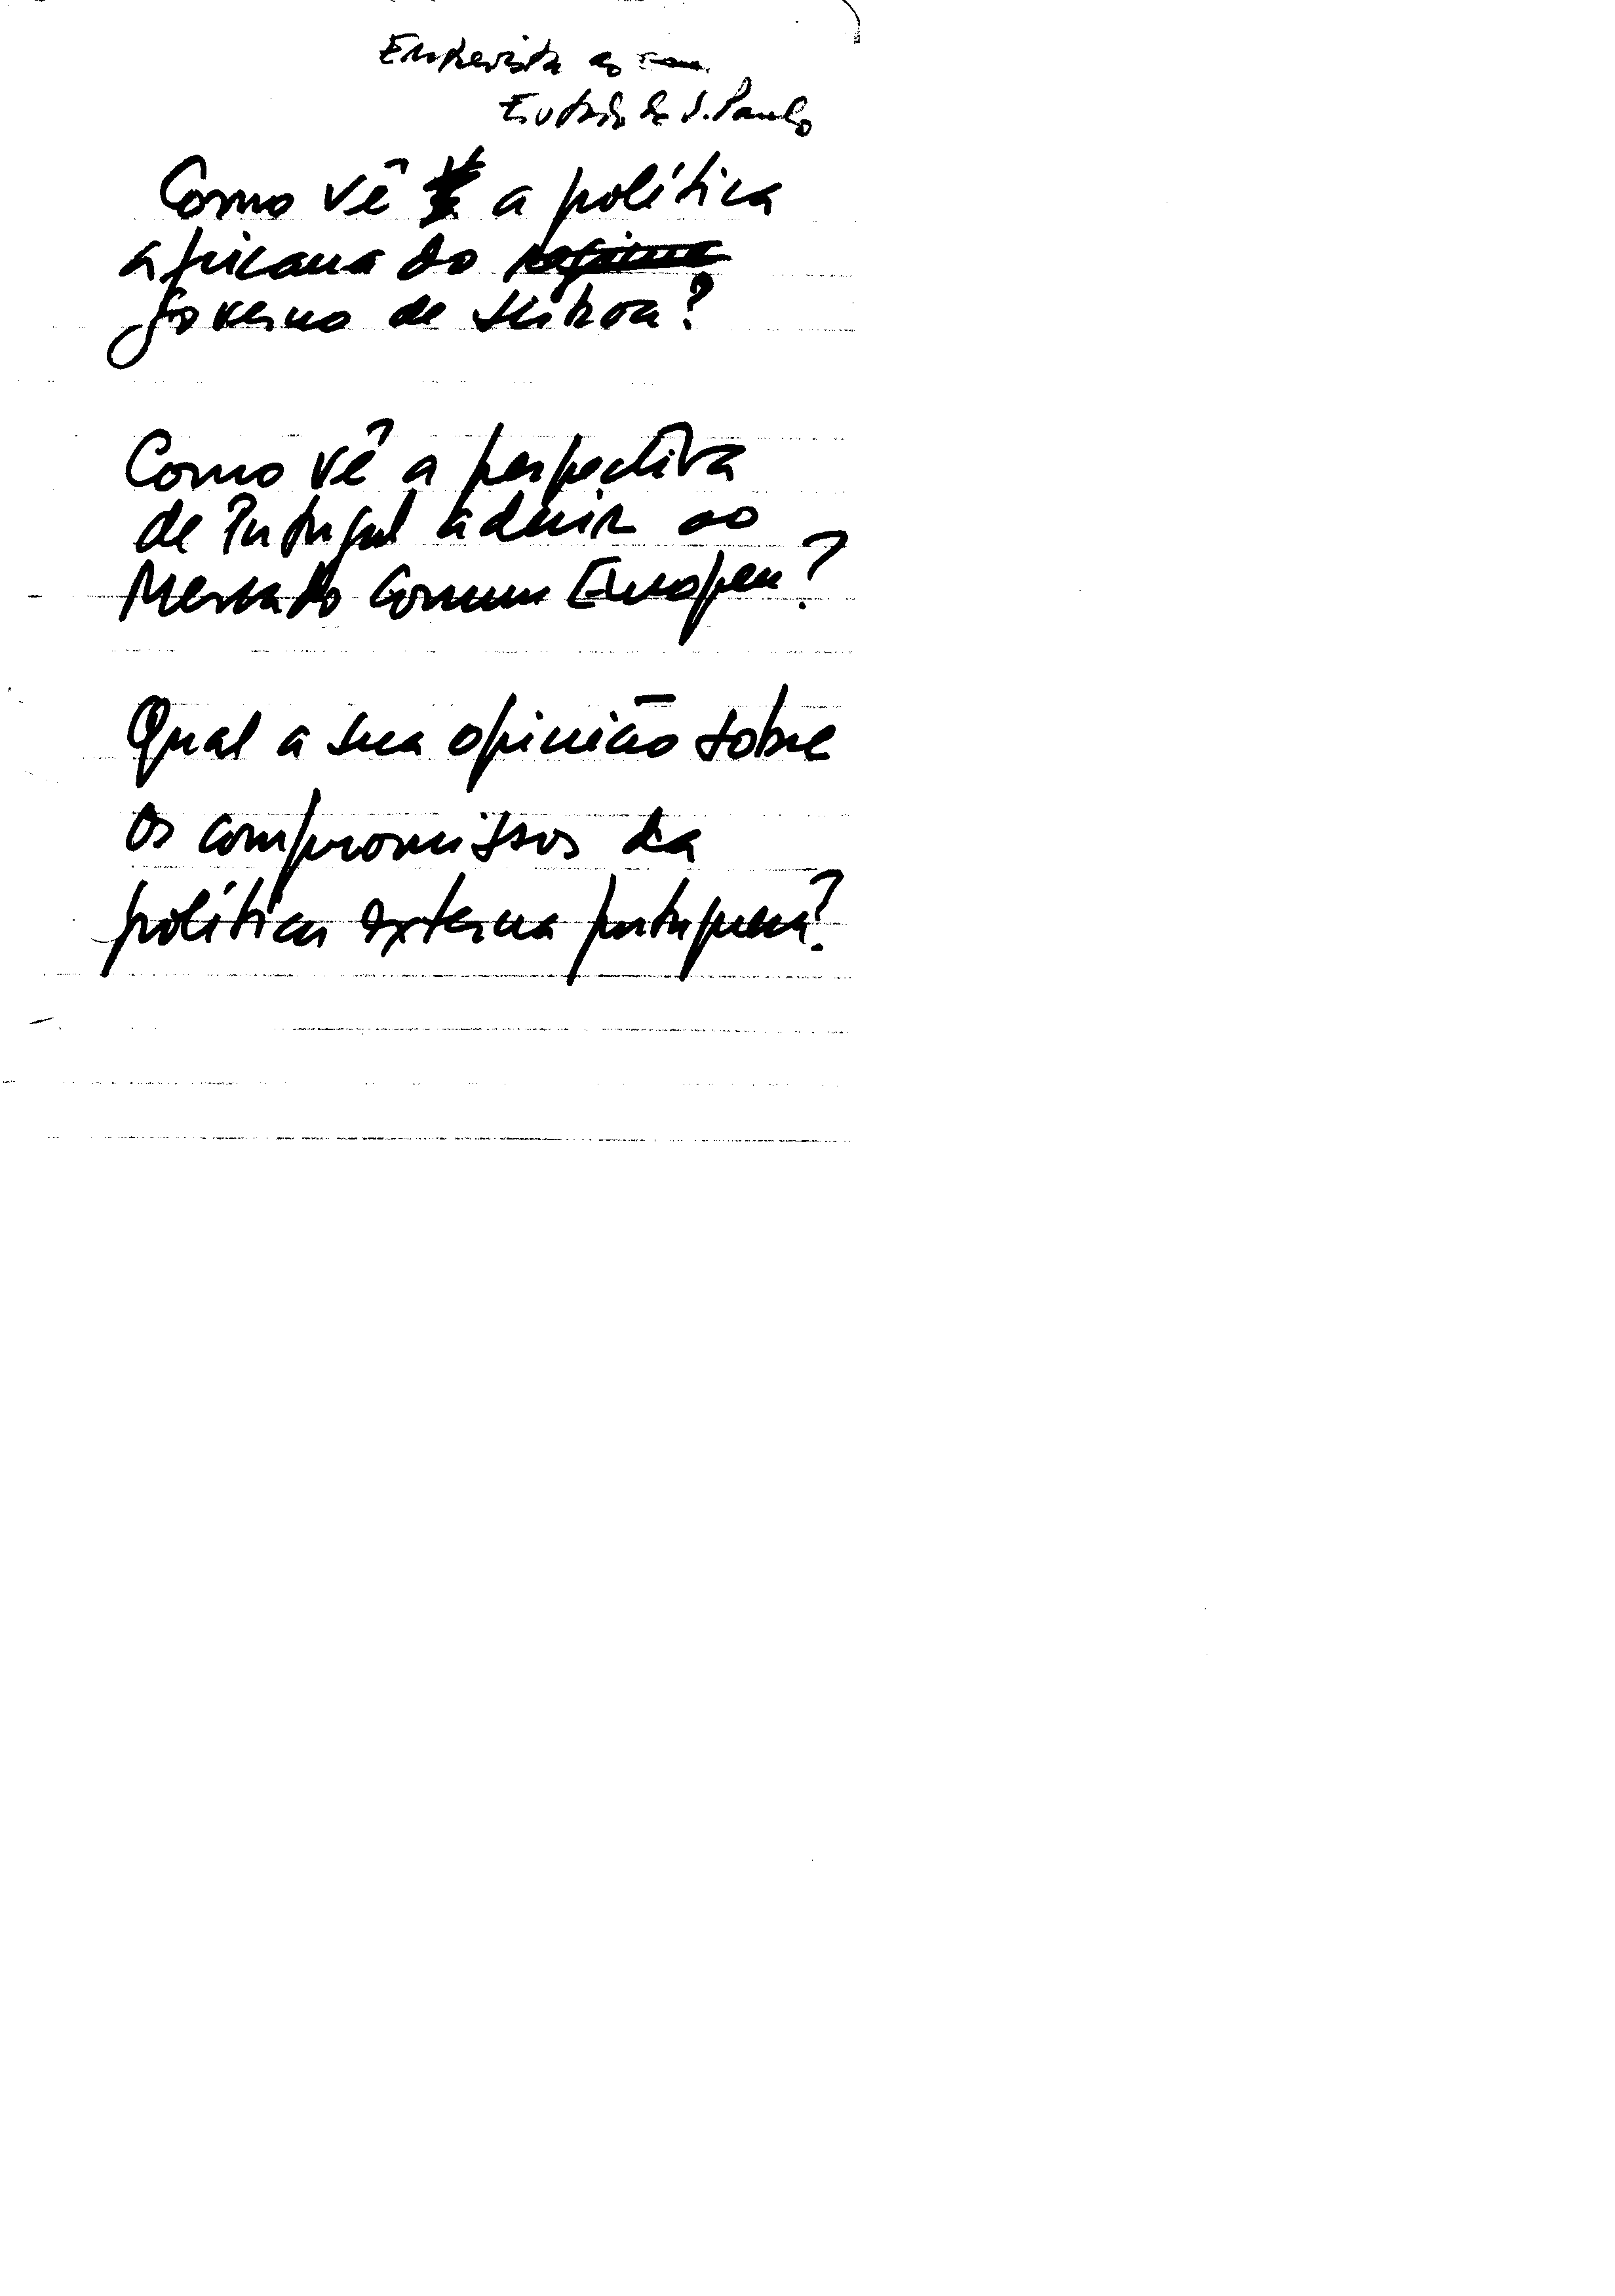 Entrevista ao
Estado de S. Paulo
Como vê a política
africana do regime
Governo de Lisboa?
Como vê a perspectiva
de Portugal aderir ao
Mercado Comum Europeu?
Qual a sua opinião sobre
os compromissos da
política externa portuguesa?